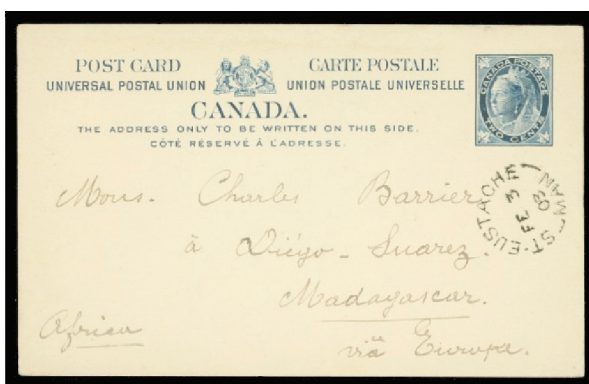 POST CARD CARTE POSTALE
UNIVERSAL POSTAL UNION UNION POSTALE UNIVERSELLE
CANADA.
THE ADDRESS ONLY TO BE WRITTEN ON THIS SIDE.
CÔTÉ RÉSERVÉ À L'ADRESSE.
CANADA POSTAGE
TWO CENTS
ST-EUSTACHE MAN
FE 3
03
Mons. Charles Barrier
à Diégo-Suarez.
Madagascar.
Africa
viâ Europe.